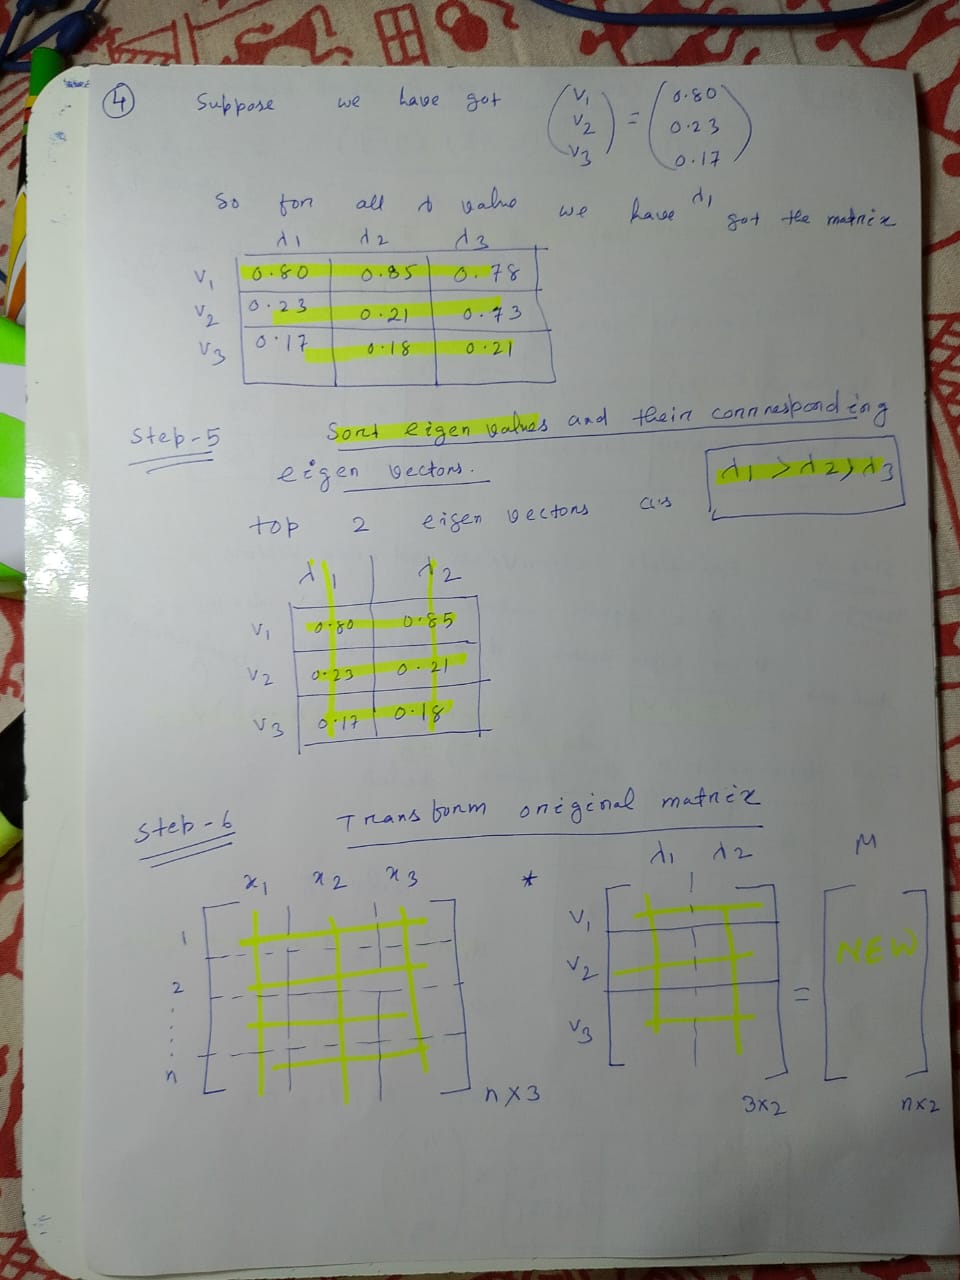 4 Suppose we have got (V1 V2 V3) = (0.80 0.23 0.17) λ1
So for all λ value we have got the matrix
λ1 λ2 λ3
V1 0.80 0.85 0.78
V2 0.23 0.21 0.73
V3 0.17 0.18 0.21
Step-5 Sort eigen values and their corrresponding
eigen vectors. λ1 > λ2 > λ3
top 2 eigen vectors as
λ1 λ2
V1 0.80 0.85
V2 0.23 0.21
V3 0.17 0.18
Step-6 Transform original matrix
x1 x2 x3 * λ1 λ2 M
1 V1
2 V2 = NEW
n V3
n×3 3×2 n×2